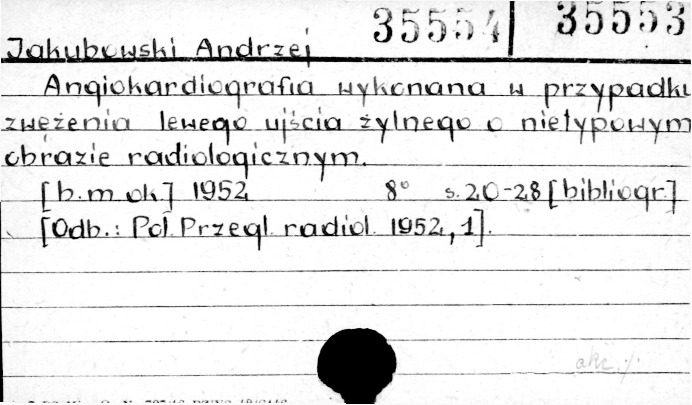 35554 35553
Jakubowski Andrzej
Angiokardiografia wykonana w przypadku
zwężenia lewego ujścia żylnego o nietypowym
obrazie radiologicznym.
[b.m.ok] 1952 8° s.20-28 [bibliogr.]
[Odb.: Pol. Przegl. radiol. 1952, 1].
akc. /.